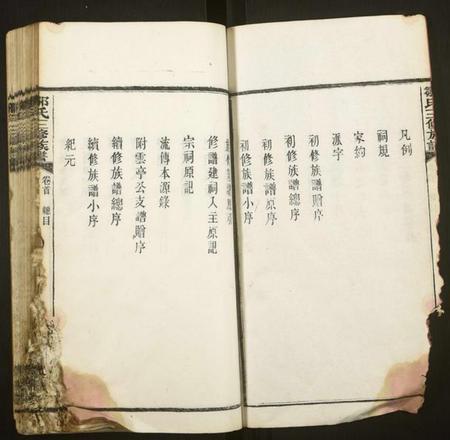 凡例
祠規
家約
派字
初修族譜贈序
初修族譜總序
初修族譜原序
初修族譜小序
修譜建祠入主原記
宗祠原記
流傳本源錄
附雲亭公支譜贈序
續修族譜總序
續修族譜小序
紀元
卷首 總目